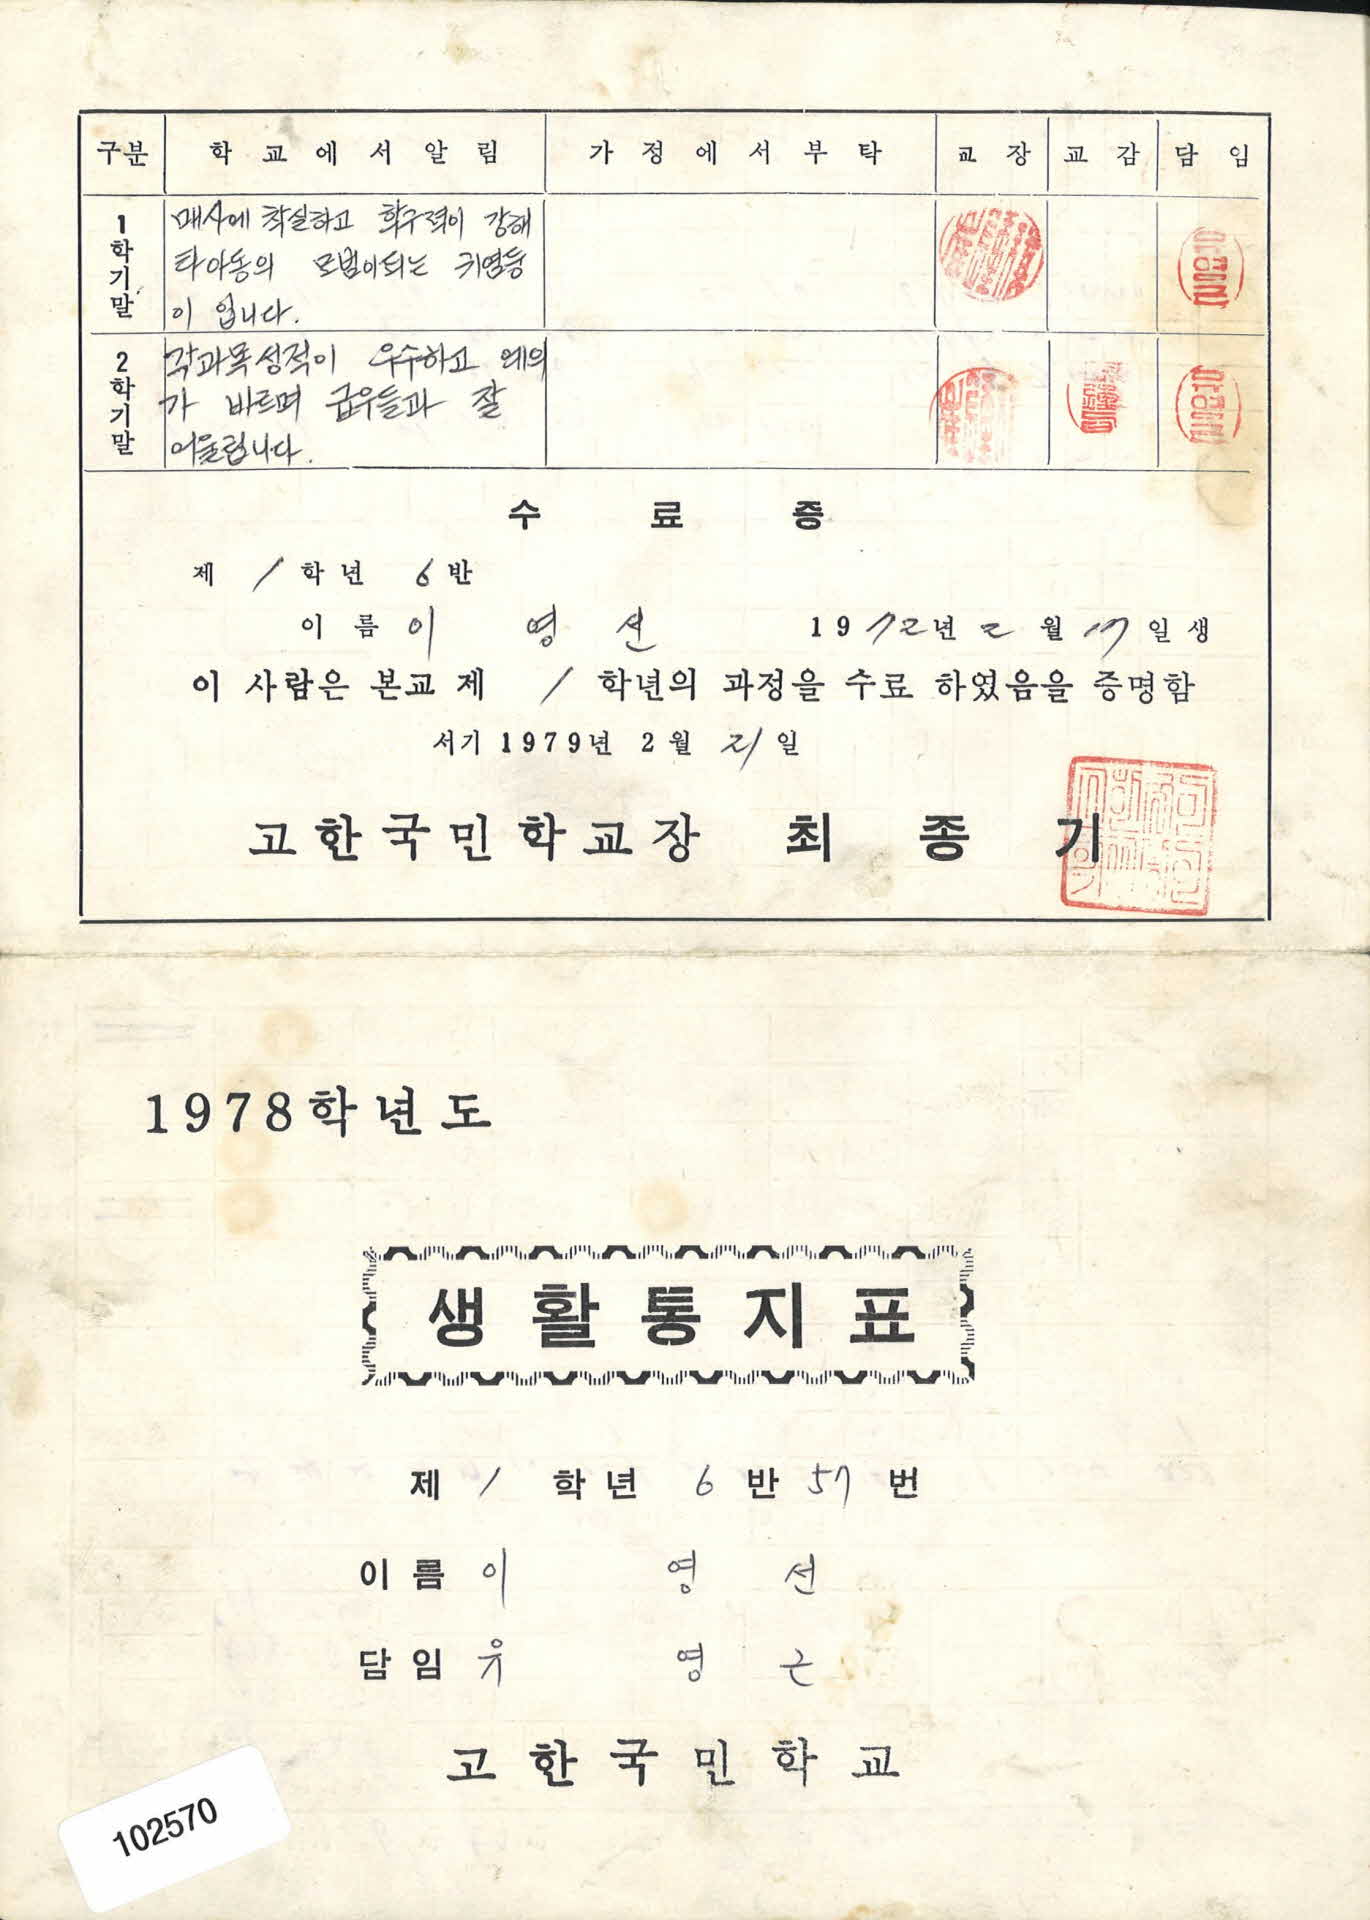 구분 학교에서알림 가정에서부탁 교장 교감 담임
1학기말
매사에 착실하고 학구적이 강해
타아동의 모범이되는 귀염둥
이 입니다.
2학기말
각과목성적이 우수하고 예의
가 바르며 급우들과 잘
어울립니다.
수료증
제 1 학년 6 반
이름 이 영선 1972년 2월 17일생
이 사람은 본교 제 1 학년의 과정을 수료 하였음을 증명함
서기 1979년 2월 21일
고한국민학교장 최종기
1978학년도
생활통지표
제 1 학년 6 반 57 번
이름 이 영 선
담임 유 영 근
고한국민학교
102570